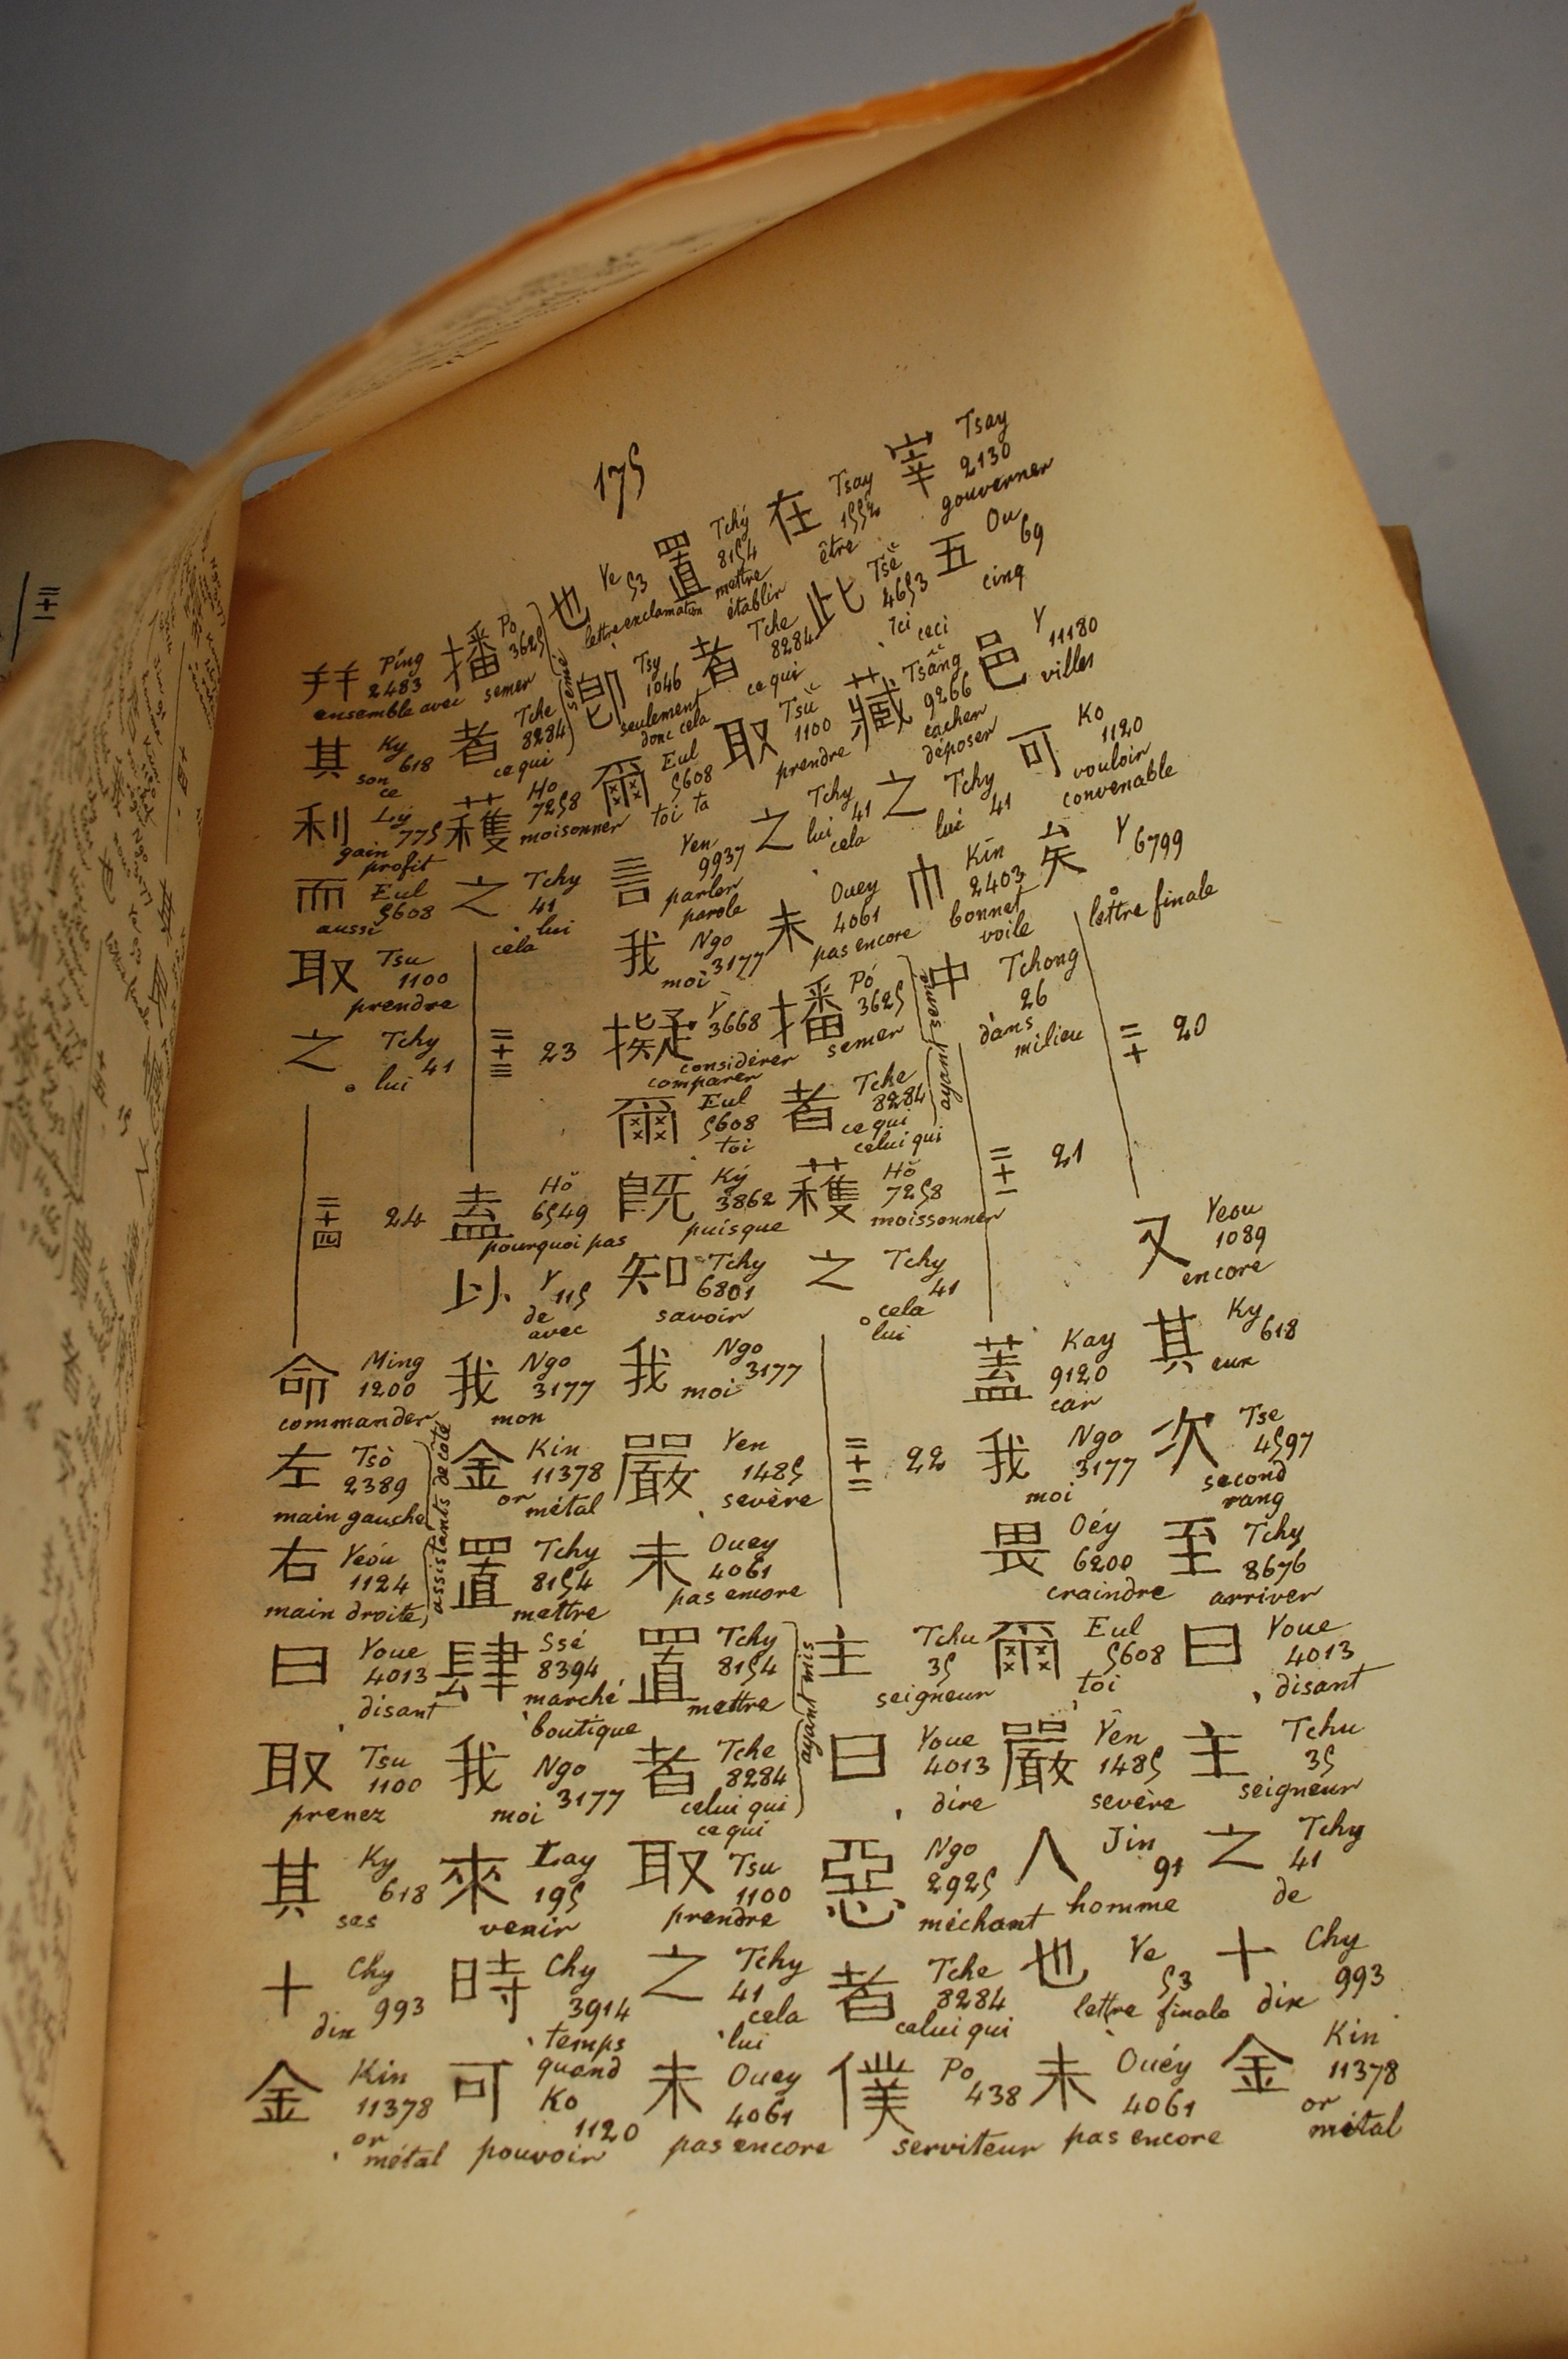 175
宰 Tsay
2130
gouverner
五 Ou
69
cinq
邑 Y
11180
villes
可 Ko
1120
vouloir
convenable
矣 Y
6799
lettre finale
二十 20
又 Yeou
1089
encore
其 Ky
618
eux
次 Tse
4597
second
rang
至 Tchy
8676
arriver
曰 Youe
4013
disant
主 Tchu
35
seigneur
之 Tchy
41
de
十 Chy
993
dix
金 Kin
11378
or
métal
在 Tsay
1552
être
此 Tsĕ
4653
ici
ceci
藏 Tsâng
9266
cacher
déposer
之 Tchy
41
lui
巾 Kīn
2403
bonnet
voile
中 Tchong
26
dans
milieu
二十一 21
蓋 Kay
9120
car
我 Ngo
3177
moi
畏 Oéy
6200
craindre
爾 Eul
5608
toi
嚴 Yên
1485
sevère
人 Jin
91
homme
也 Ye
53
lettre finale
未 Ouéy
4061
pas encore
置 Tchý
8154
mettre
établir
者 Tche
8284
ce qui
取 Tsŭ
1100
prendre
之 Tchy
41
lui
cela
未 Ouey
4061
pas encore
播 Pó
3625
semer
者 Tche
8284
ce qui
celui qui
ayant semé
穫 Hŏ
7258
moissonner
之 Tchy
41
cela
lui
二十二 22
主 Tchu
35
seigneur
曰 Youe
4013
dire
惡 Ngo
2925
méchant
者 Tche
8284
celui qui
僕 Po
438
serviteur
也 Ye
53
lettre exclamation
卽 Tsy
1046
seulement
donc cela
爾 Eul
5608
toi ta
言 Yen
9937
parler
parole
我 Ngo
3177
moi
擬 Y
3668
considérer
comparer
爾 Eul
5608
toi
既 Ký
3862
puisque
知 Tchy
6801
savoir
我 Ngo
3177
moi
嚴 Yen
1485
sevère
未 Ouey
4061
pas encore
置 Tchy
8154
mettre
者 Tche
8284
celui qui
ce qui
ayant mis
取 Tsu
1100
prendre
之 Tchy
41
cela
lui
未 Ouey
4061
pas encore
播 Po
3625
semer
者 Tche
8284
ce qui
semé
穫 Ho
7258
moisonner
之 Tchy
41
lui
cela
二十三 23
盍 Hŏ
6549
pourquoi pas
以 Y
115
de
avec
我 Ngo
3177
mon
金 Kin
11378
or
métal
置 Tchy
8154
mettre
肆 Ssé
8394
marché
boutique
我 Ngo
3177
moi
來 Lay
195
venir
時 Chy
3914
temps
quand
可 Ko
1120
pouvoir
幷 Píng
2483
ensemble avec
其 Ky
618
son
ce
利 Lý
775
gain
profit
而 Eul
5608
aussi
取 Tsu
1100
prendre
之 Tchy
41
lui
二十四 24
命 Ming
1200
commander
左 Tsò
2389
main gauche
右 Yeóu
1124
main droite
assistants de coté
曰 Youe
4013
disant
取 Tsu
1100
prenez
其 Ky
618
ses
十 Chy
993
dix
金 Kin
11378
or
métal